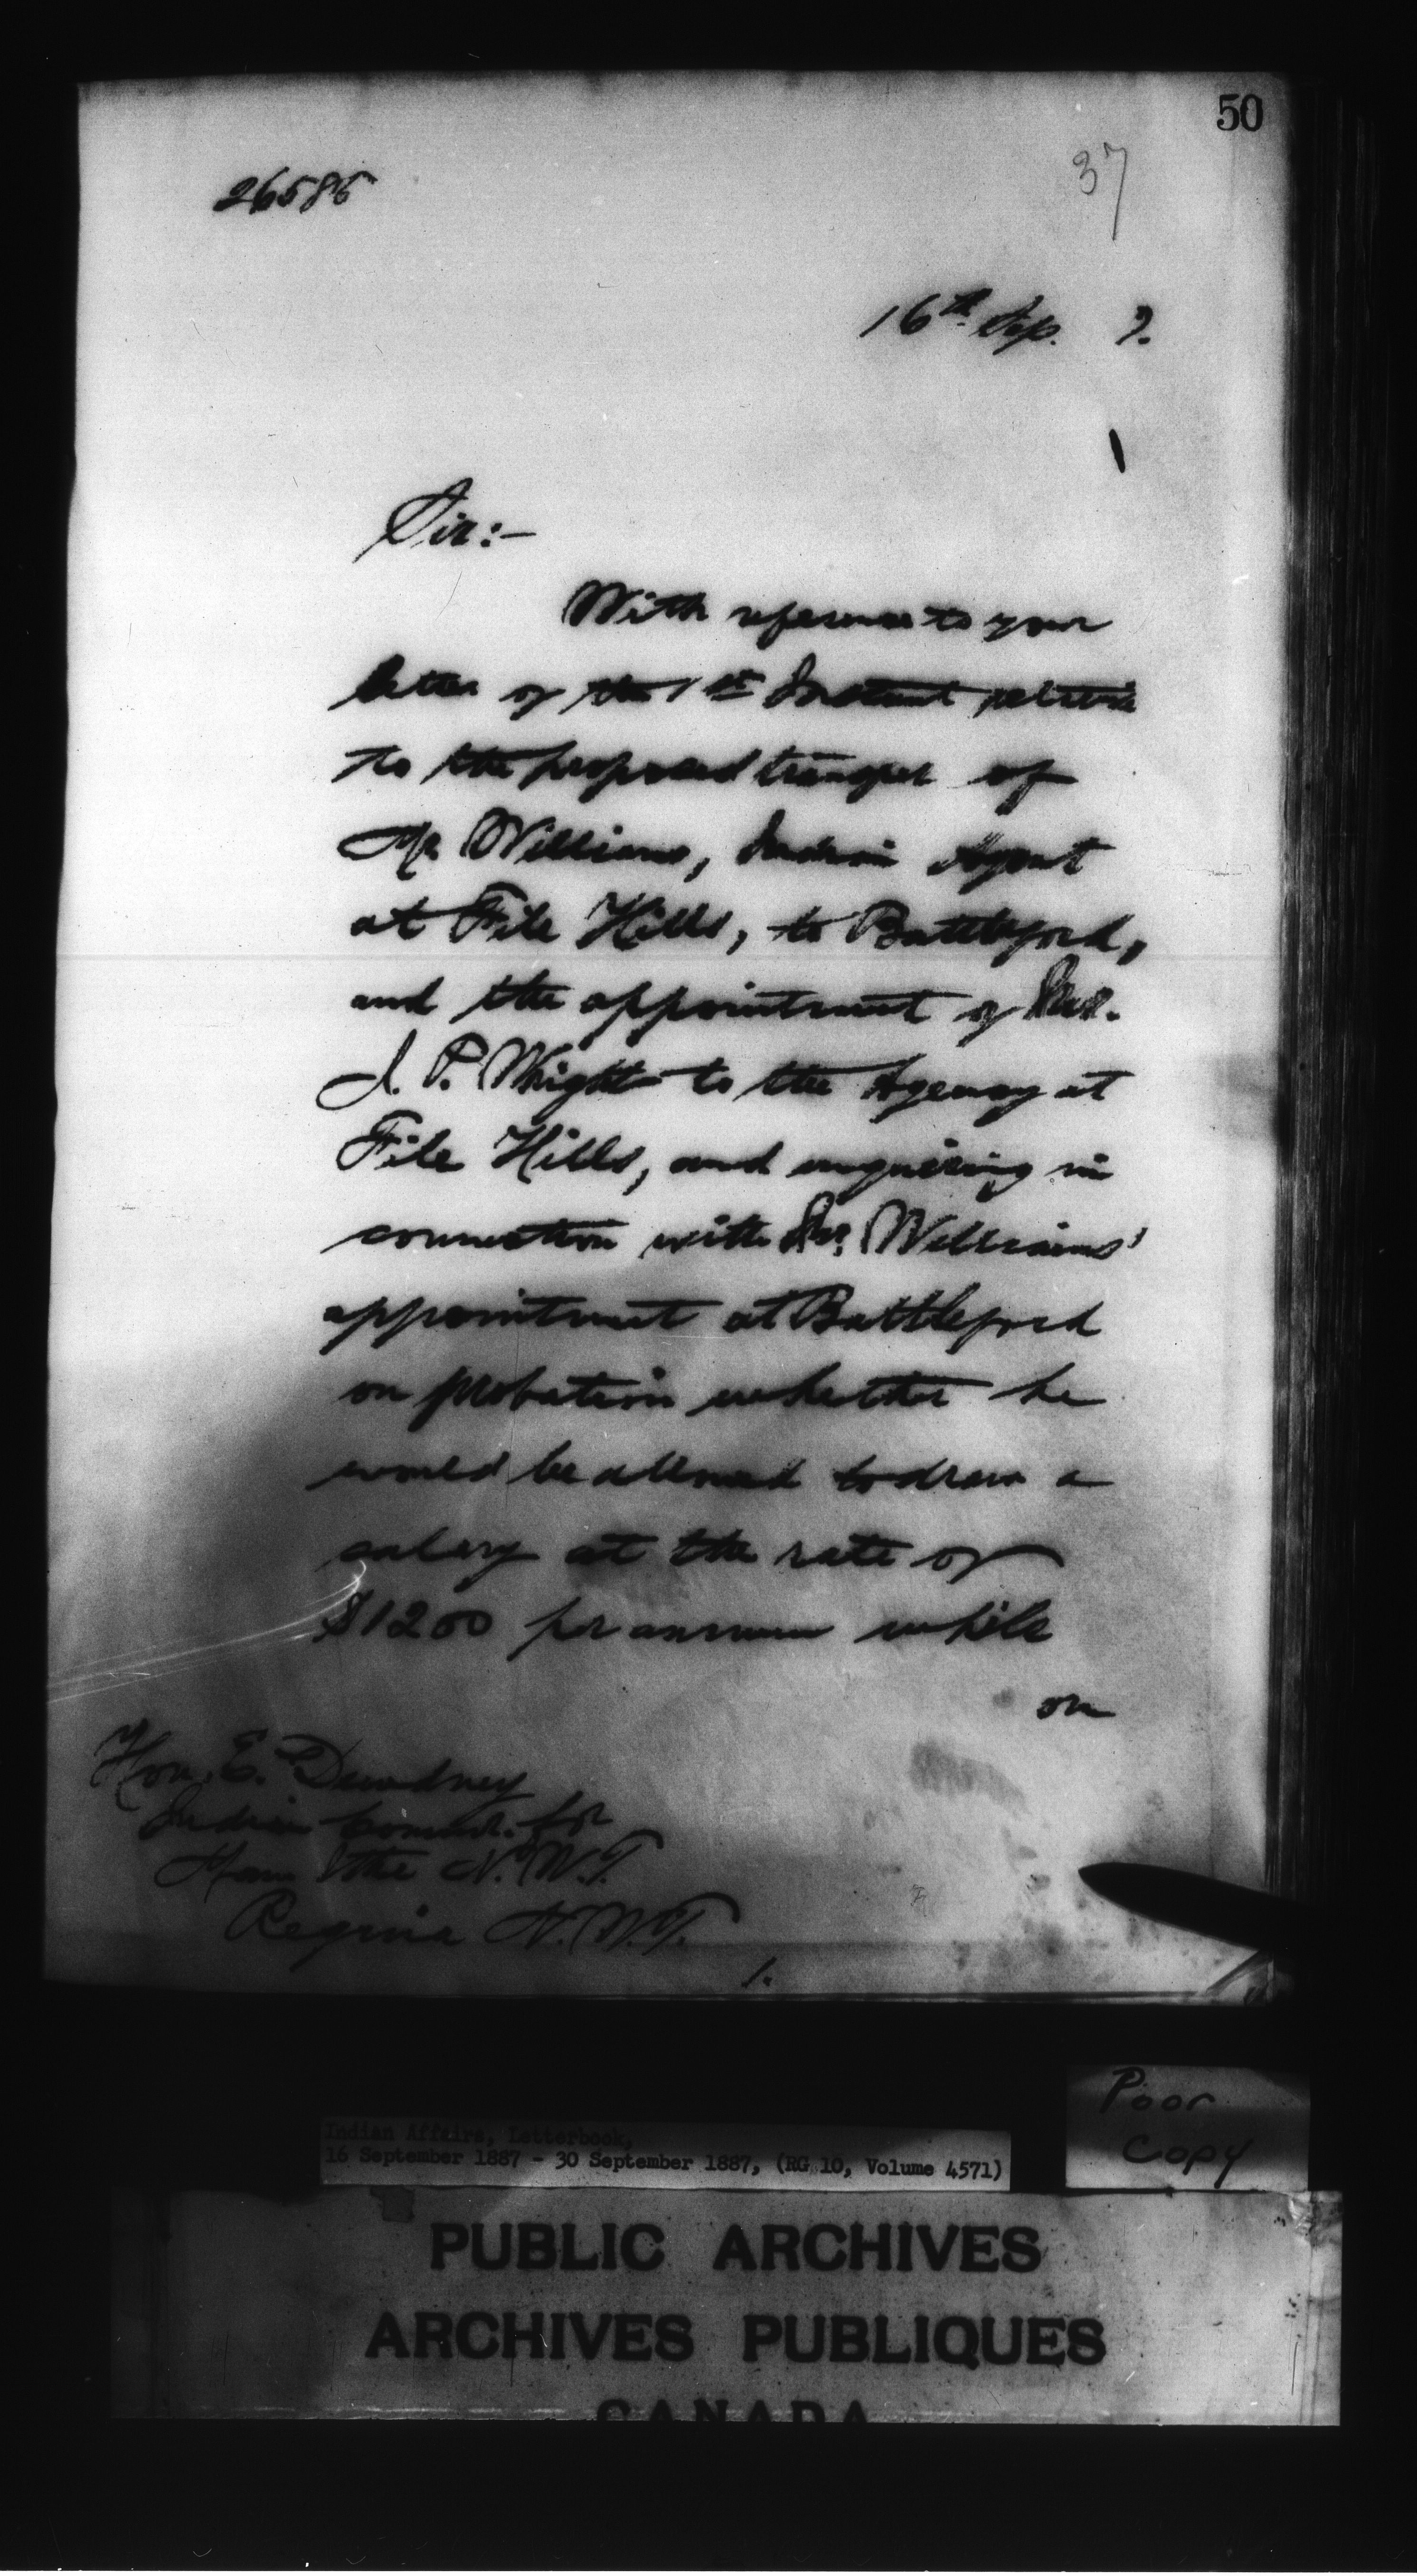 50
37
26585
16th Sep. 7.
Sir:-
With reference to your
letter of the 1st Instant relative
to the proposed transfer of
Mr Williams, Indian Agent
at File Hills, to Battleford,
and the appointment of Mr.
J. P. Wright to the Agency at
File Hills, and enquiring in
connection with Mr. Williams'
appointment at Battleford
on probation whether he
would be allowed to draw a
salary at the rate of
$1200 per annum while
on
Hon. E. Dewdney
Indian Commr. for
Man & the N.W.T.
Regina N.W.T.
1.
Poor
Copy
Indian Affairs, Letterbook,
16 September 1887 - 30 September 1887, (RG 10, Volume 4571)
PUBLIC ARCHIVES
ARCHIVES PUBLIQUES
CANADA